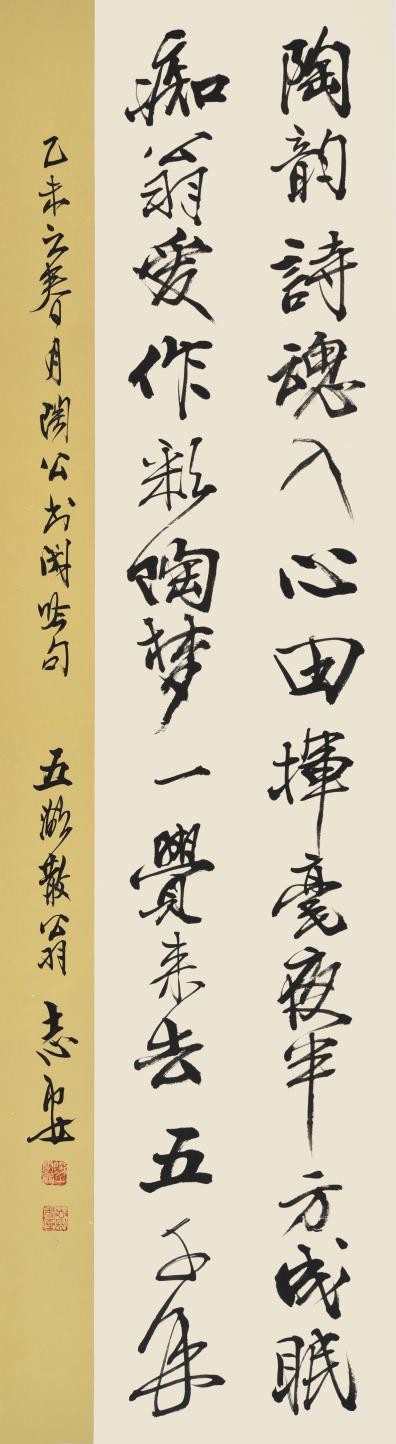 陶韵詩魂入心田揮毫夜半方成眠
痴翁爱作彩陶梦一覺来去五千年
乙未立春月陶公书闲吟句 五湖散翁 志